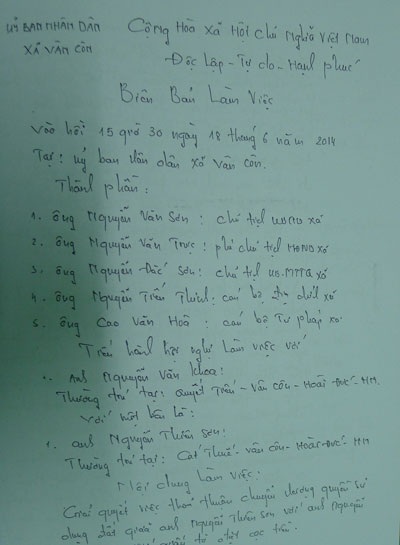 Uỷ BAN NHÂN DÂN
XÃ VÂN CÔN
Cộng Hòa Xã Hội Chủ Nghĩa Việt Nam
Độc Lập - Tự do - Hạnh phúc
Biên Bản Làm Việc
Vào hồi 15 giờ 30 ngày 18 tháng 6 năm 2014
Tại: uỷ ban dân xã Vân Côn.
Thành phần:
1. ông Nguyễn Văn Sơn: chủ tịch UBND xã
2. ông Nguyễn Văn Trực: phó chủ tịch HĐND xã
3. ông Nguyễn Đắc Sơn: chủ tịch UB.MTTQ xã
4. ông Nguyễn Tiến Thịnh: cán bộ địa chính xã
5. ông Cao Văn Hoà: cán bộ Tư pháp xã
Tiến hành hội nghị làm việc với
Anh Nguyễn Văn Khoa:
Thường trú tại: Quyết Tiến - Vân Côn - Hoài Đức - HN.
Với một bên là:
1. anh Nguyễn Thiên Sơn:
Thường trú tại: Cát Thuế - Vân Côn - Hoài Đức - HN
Nội dung làm việc:
Giải quyết việc thoả thuận chuyển nhượng quyền sử
dụng đất giữa anh Nguyễn Thiên Sơn với anh Nguyễn